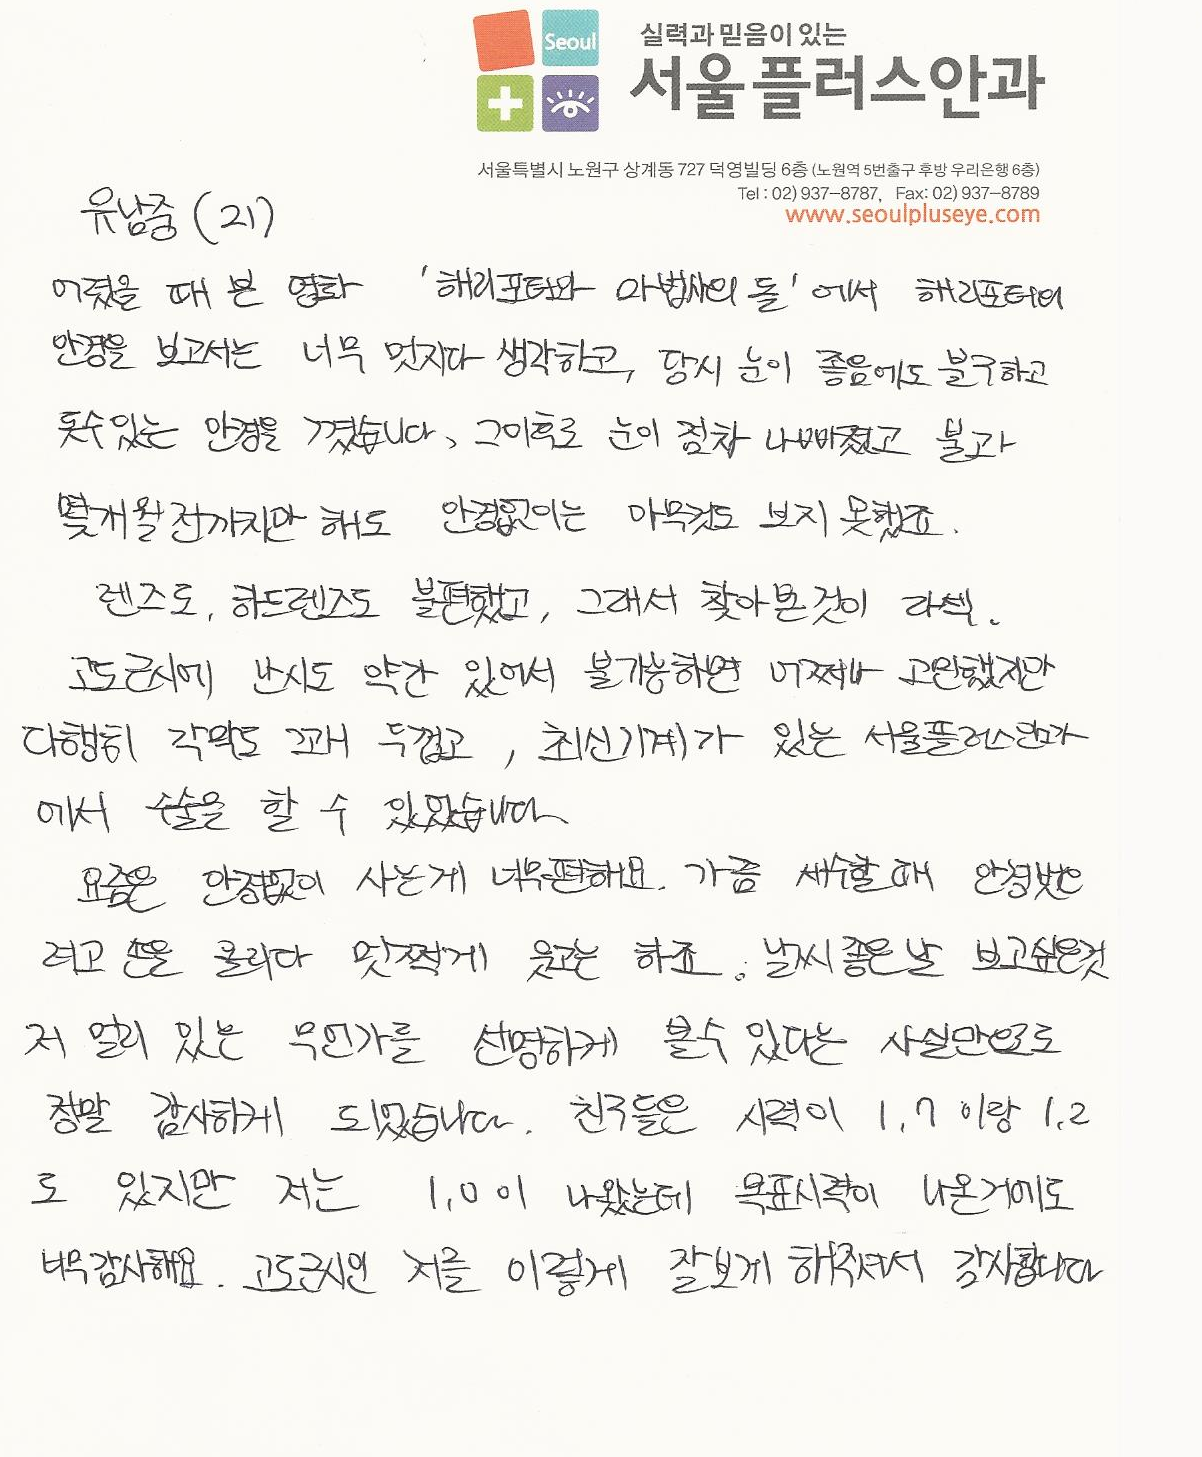 Seoul
실력과 믿음이 있는
서울플러스안과
서울특별시 노원구 상계동 727 덕영빌딩 6층 (노원역 5번출구 후방 우리은행 6층)
Tel : 02) 937-8787, Fax: 02) 937-8789
www.seoulpluseye.com
유남중 (21)
어렸을 때 본 영화 '해리포터와 마법사의 돌' 에서 해리포터의
안경을 보고서는 너무 멋지다 생각하고, 당시 눈이 좋음에도 불구하고
돗수있는 안경을 꼈습니다. 그이후로 눈이 점차 나빠졌고 불과
몇개월 전까지만 해도 안경없이는 아무것도 보지 못했죠.
렌즈도, 하드렌즈도 불편했고, 그래서 찾아본것이 라섹.
고도근시에 난시도 약간 있어서 불가능하면 어쩌나 고민했지만
다행히 각막도 꽤 두껍고, 최신기계가 있는 서울플러스안과
에서 수술을 할 수 있었습니다
요즘은 안경없이 사는게 너무편해요. 가끔 세수할때 안경벗으
려고 손을 올리다 멋쩍게 웃고는 하죠. 날씨 좋은날 보고싶은것
저 멀리 있는 무언가를 선명하게 볼수 있다는 사실만으로
정말 감사하게 되었습니다. 친구들은 시력이 1.7 이랑 1.2
도 있지만 저는 1.0이 나왔는데 목표시력이 나온거에도
너무감사해요. 고도근시인 저를 이렇게 잘보게 해주셔서 감사합니다